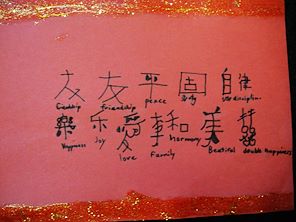 友 友 平 固 自律
friendship friendship peace self discipline
樂 乐 愛 和 美 囍
Happiness Joy love Family harmony Beatiful double happiness